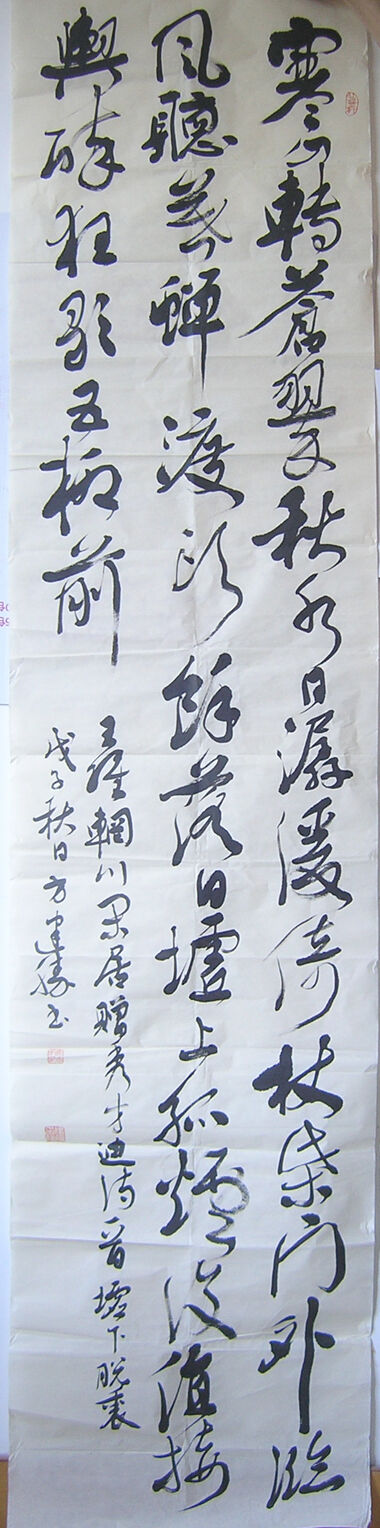 寒山轉蒼翠秋水日潺湲倚杖柴門外臨
風聽暮蟬渡頭餘落日墟上孤煙復值接
輿醉狂歌五柳前
王維輞川閑居贈秀才迪詩一首墟下脱裏
戊子秋日方建勝書